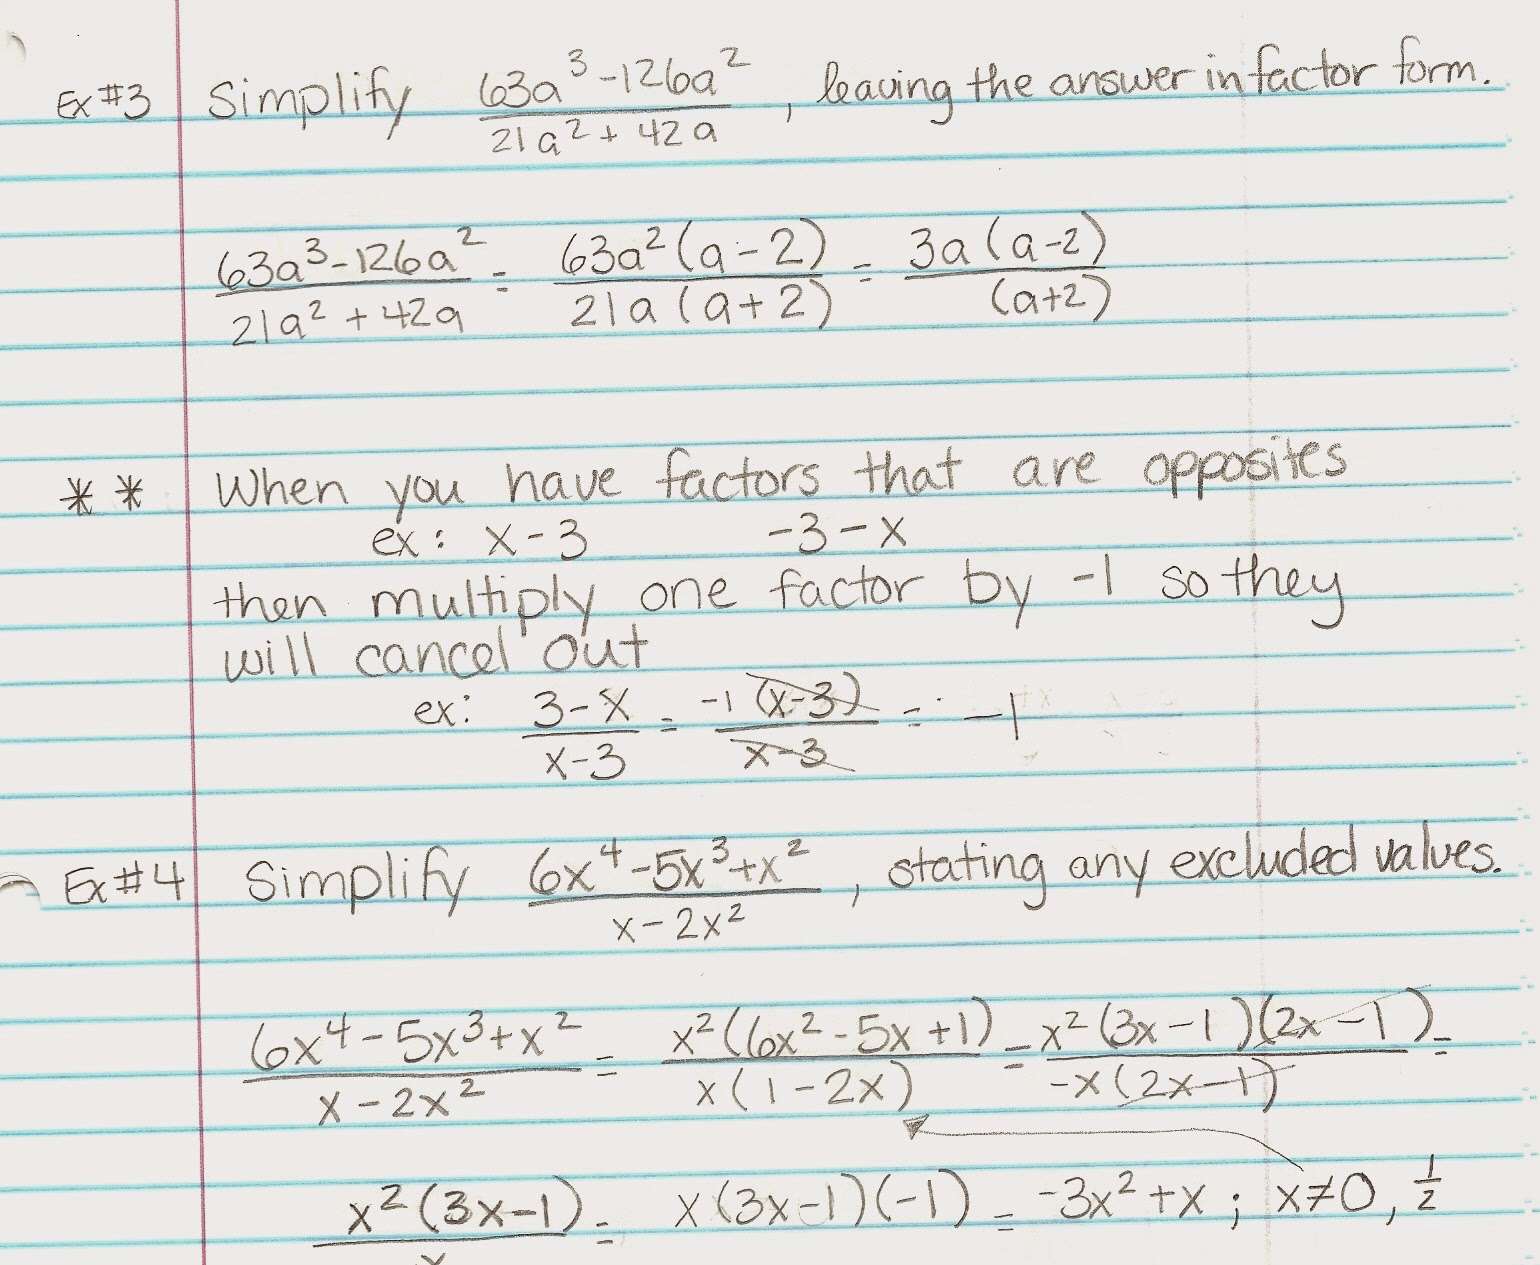 Ex #3 Simplify (63a³ - 126a²)/(21a² + 42a), leaving the answer in factor form.
(63a³ - 126a²)/(21a² + 42a) = 63a²(a - 2)/21a(a + 2) = 3a(a - 2)/(a+2)
** When you have factors that are opposites
ex: x - 3 -3 - x
then multiply one factor by -1 so they
will cancel out
ex: (3 - x)/(x - 3) = -1(x - 3)/(x - 3) = -1
Ex #4 Simplify (6x⁴ - 5x³ + x²)/(x - 2x²), stating any excluded values.
(6x⁴ - 5x³ + x²)/(x - 2x²) = x²(6x² - 5x + 1)/x(1 - 2x) = x²(3x - 1)(2x - 1)/-x(2x - 1) =
x²(3x - 1)/x = x(3x - 1)(-1) = -3x² + x ; x ≠ 0, 1/2